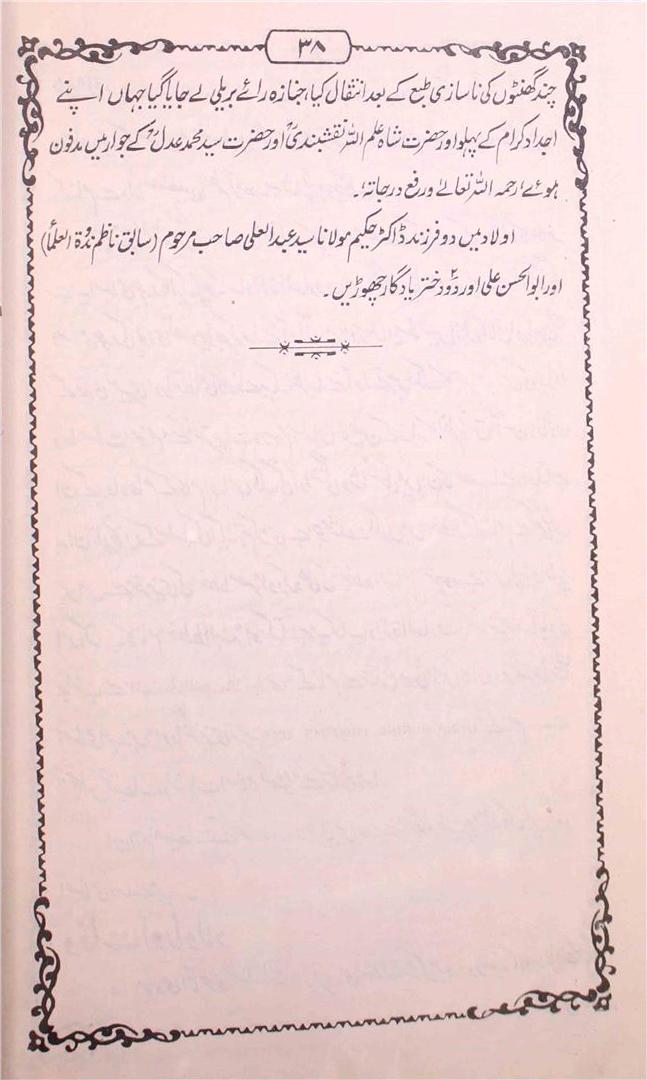 ۳۸
چند گھنٹوں کی ناسازی طبع کے بعد انتقال کیا، جنازہ رائے بریلی لے جایا گیا جہاں اپنے
اجداد کرام کے پہلو اور حضرت شاہ علم اللہ نقشبندیؒ اور حضرت سید محمد عدلؒ کے جوار میں مدفون
ہوئے، رحمہ اللہ تعالےٰ ورفع درجاتہ،۔
اولاد میں دو فرزند ڈاکٹر حکیم مولانا سید عبدالعلی صاحب مرحوم (سابق ناظم ندوۃ العلماء)
اور ابوالحسن علی اور دو دختر یادگار چھوڑیں۔